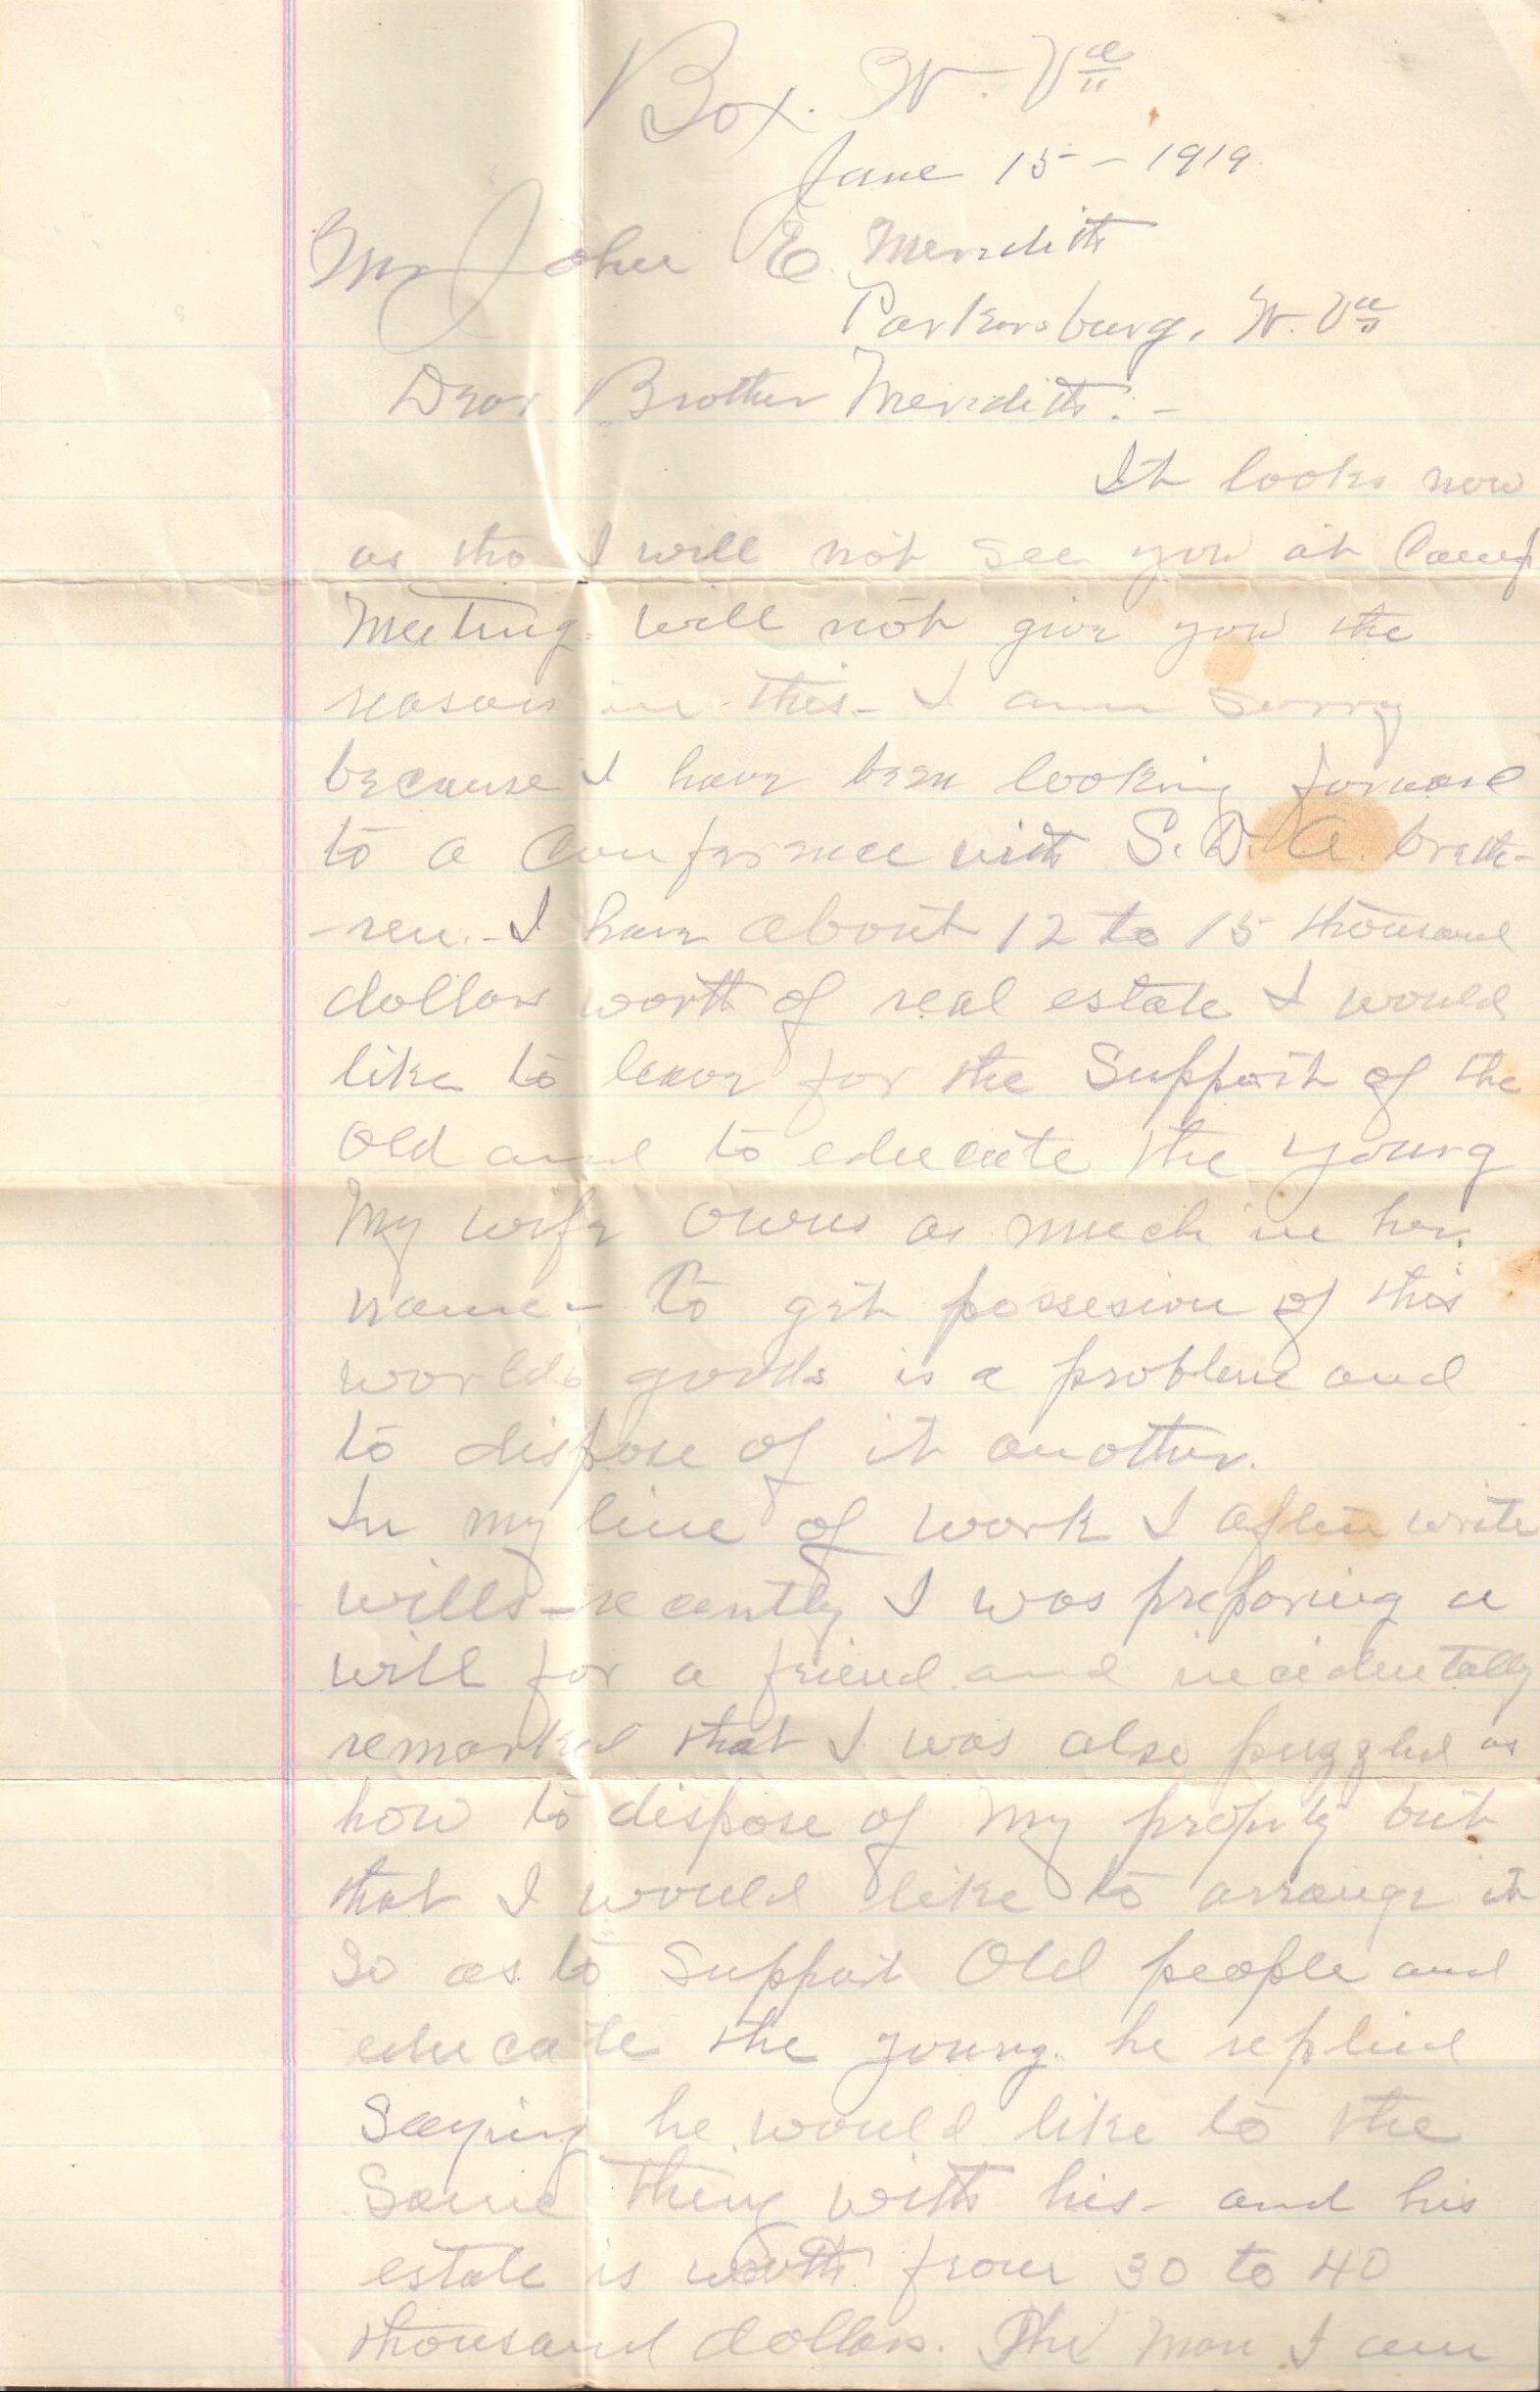 Box. W. Va
June 15 - 1919.
Mr John E. Meredith
Parkersburg, W. Va
Dear Brother Meredith: -
It looks now
as tho I will not see you at Camp
Meeting will not give you the
reason in this - I am sorry
because I have been looking forward
to a Conference with S. D. A. breth-
-ren. - I have about 12 to 15 thousand
dollars worth of real estate I would
like to leave for the Support of the
Old and to educate the young
My wife owns as much in her
name - To get possesion of this
worlds goods is a problem and
to dispose of it another.
In my line of work I often write
wills - recently I was preparing a
will for a friend and incidentally
remarked that I was also puzzled as
how to dispose of my proprty but
that I would like to arrange it
so as to Support Old people and
educate the young. he replied
Saying he would like to the
Same thing with his - and his
estate is worth from 30 to 40
thousand dollars. The man I am